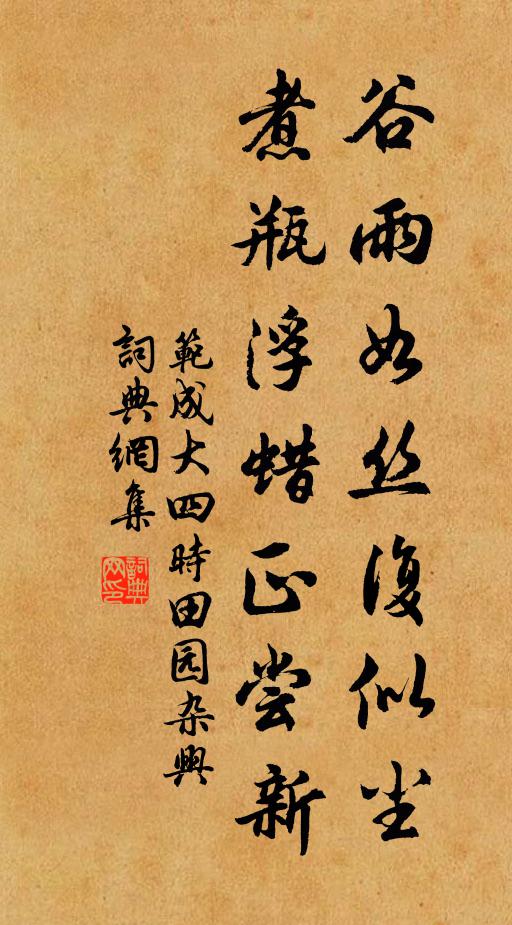 谷雨如丝復似尘
煮瓶浮蜡正尝新
範成大四時田园杂興
詞典網集
詞典网印